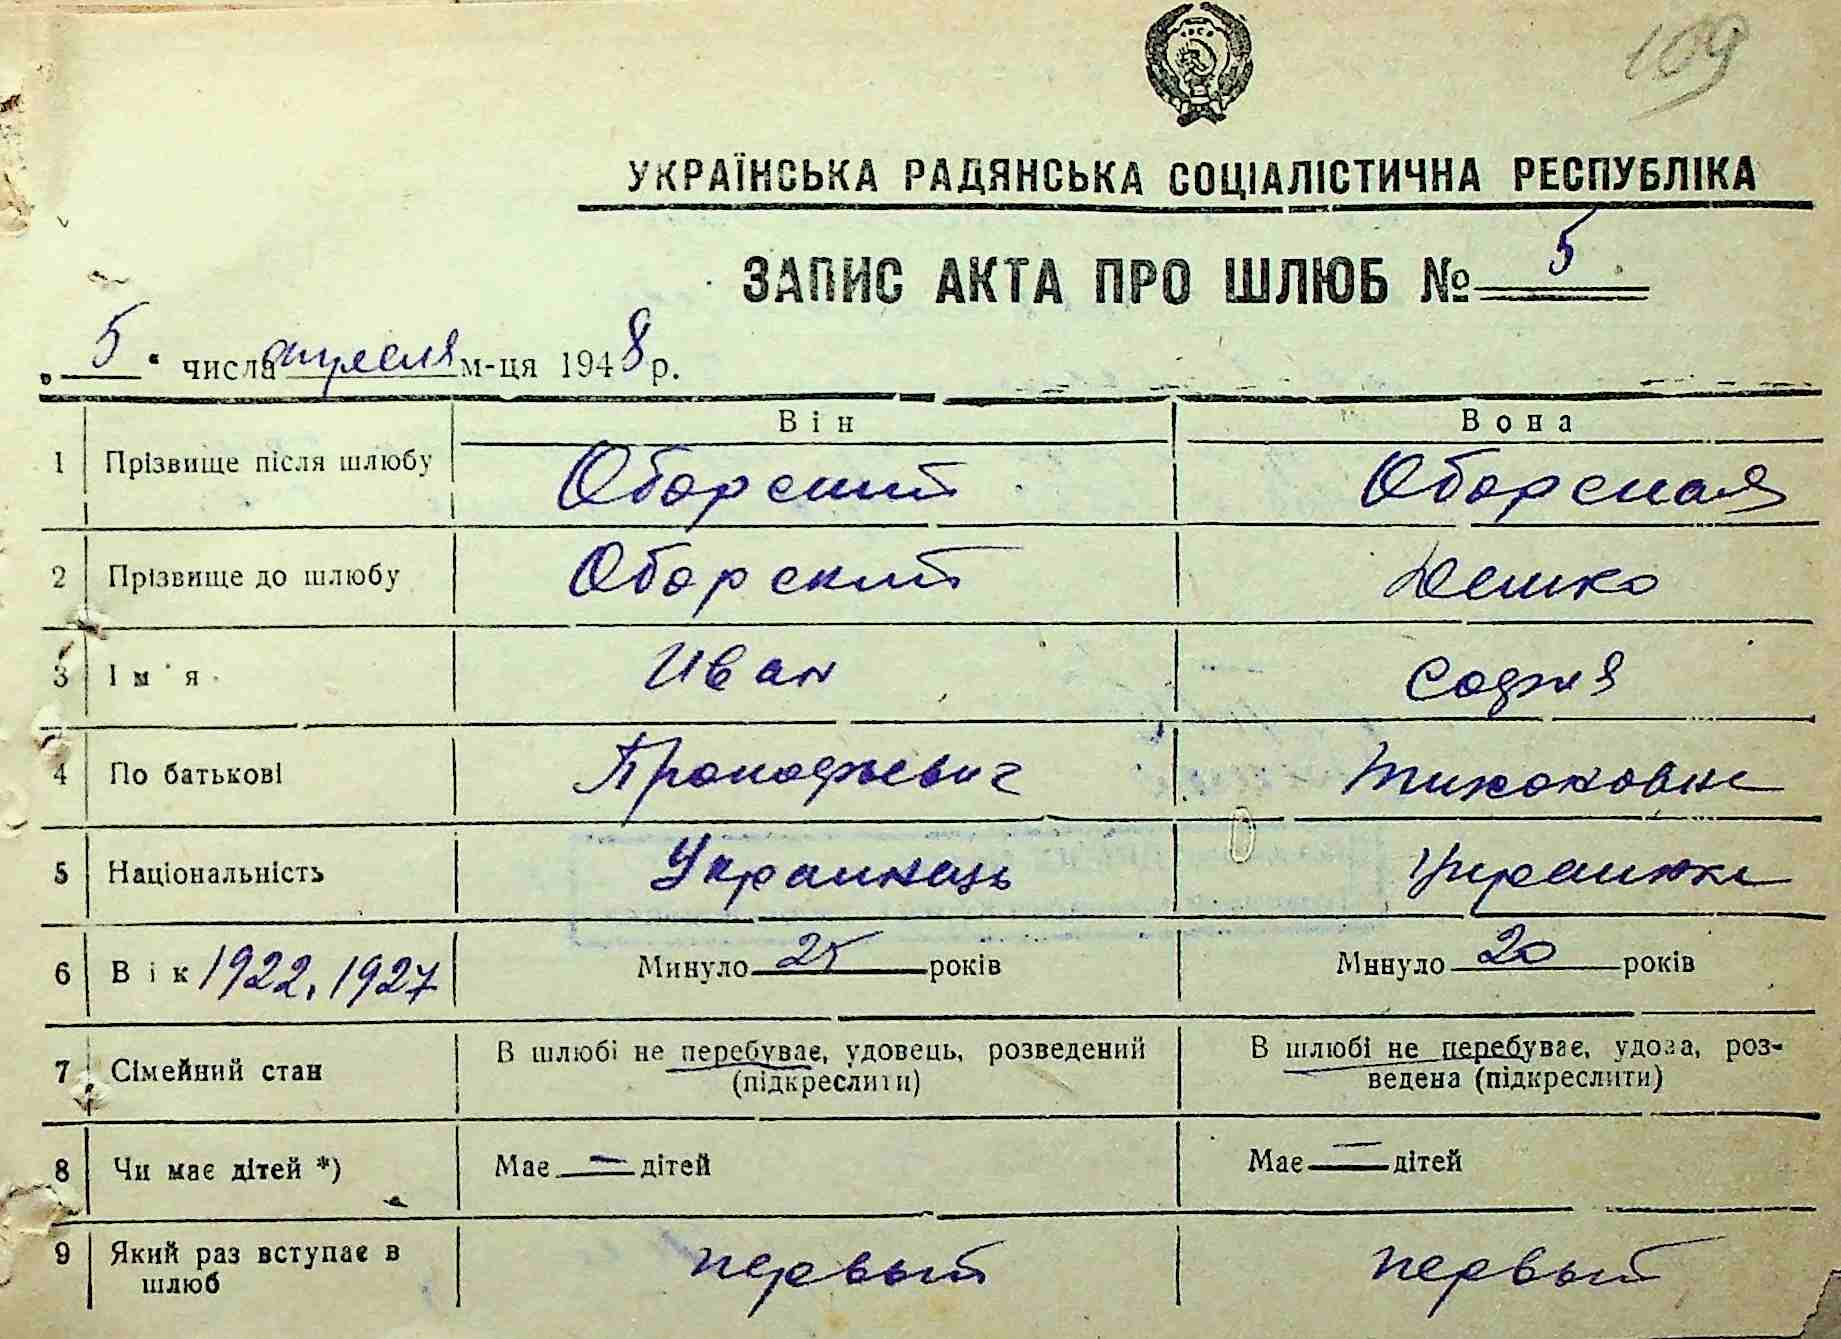 109
УКРАЇНСЬКА РАДЯНСЬКА СОЦІАЛІСТИЧНА РЕСПУБЛІКА
ЗАПИС АКТА ПРО ШЛЮБ № 5
„ 5 “ числа апреля м-ця 1948 р.
Він Вона
1 Прізвище після шлюбу Оборский Оборская
2 Прізвище до шлюбу Оборский Дешко
3 Ім'я Иван София
4 По батькові Прокофьевич Тихоновна
5 Національність Украинець Украинка
6 Вік 1922, 1927 Минуло 25 років Минуло 20 років
7 Сімейний стан В шлюбі не перебуває, удовець, розведений (підкреслити) В шлюбі не перебуває, удова, роз-
ведена (підкреслити)
8 Чи має дітей *) Має — дітей Має — дітей
9 Який раз вступає в шлюб первый первый